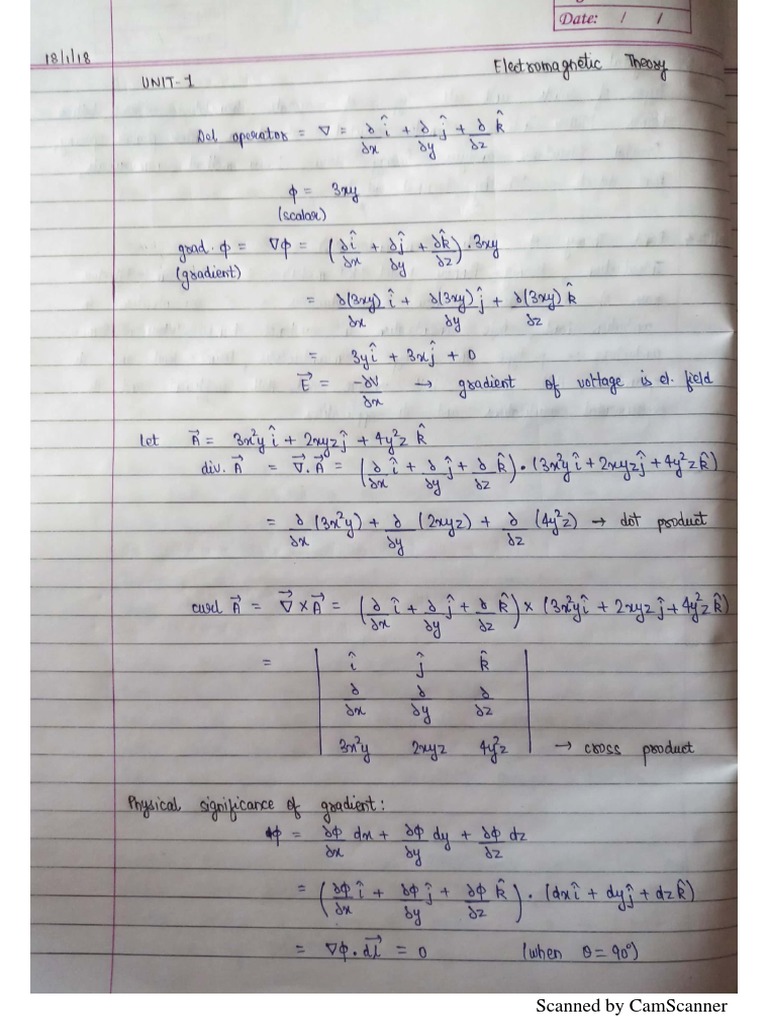 Date: / /
18/1/18
Electromagnetic Theory
UNIT-1
Del operator = ∇ = ∂/∂x î + ∂/∂y ĵ + ∂/∂z k̂
ϕ = 3xy
(scalar)
grad. ϕ = ∇ϕ = (∂î/∂x + ∂ĵ/∂y + ∂k̂/∂z) . 3xy
(gradient)
= ∂(3xy)/∂x î + ∂(3xy)/∂y ĵ + ∂(3xy)/∂z k̂
= 3yî + 3xĵ + 0
E⃗ = -∂V/∂x → gradient of voltage is el. field
let A⃗ = 3x²y î + 2xyzĵ + 4y²z k̂
div. A⃗ = ∇⃗.A⃗ = (∂/∂x î + ∂/∂y ĵ + ∂/∂z k̂) . (3x²y î + 2xyzĵ + 4y²z k̂)
= ∂/∂x (3x²y) + ∂/∂y (2xyz) + ∂/∂z (4y²z) → dot product
curl A⃗ = ∇⃗ × A⃗ = (∂/∂x î + ∂/∂y ĵ + ∂/∂z k̂) × (3x²yî + 2xyz ĵ + 4y²z k̂)
= | î ĵ k̂ |
| ∂/∂x ∂/∂y ∂/∂z |
| 3x²y 2xyz 4y²z | → cross product
Physical significance of gradient:
ϕ = ∂ϕ/∂x dx + ∂ϕ/∂y dy + ∂ϕ/∂z dz
= (∂ϕ/∂x î + ∂ϕ/∂y ĵ + ∂ϕ/∂z k̂) . (dxî + dyĵ + dzk̂)
= ∇ϕ.dl⃗ = 0 (when θ = 90°)
Scanned by CamScanner